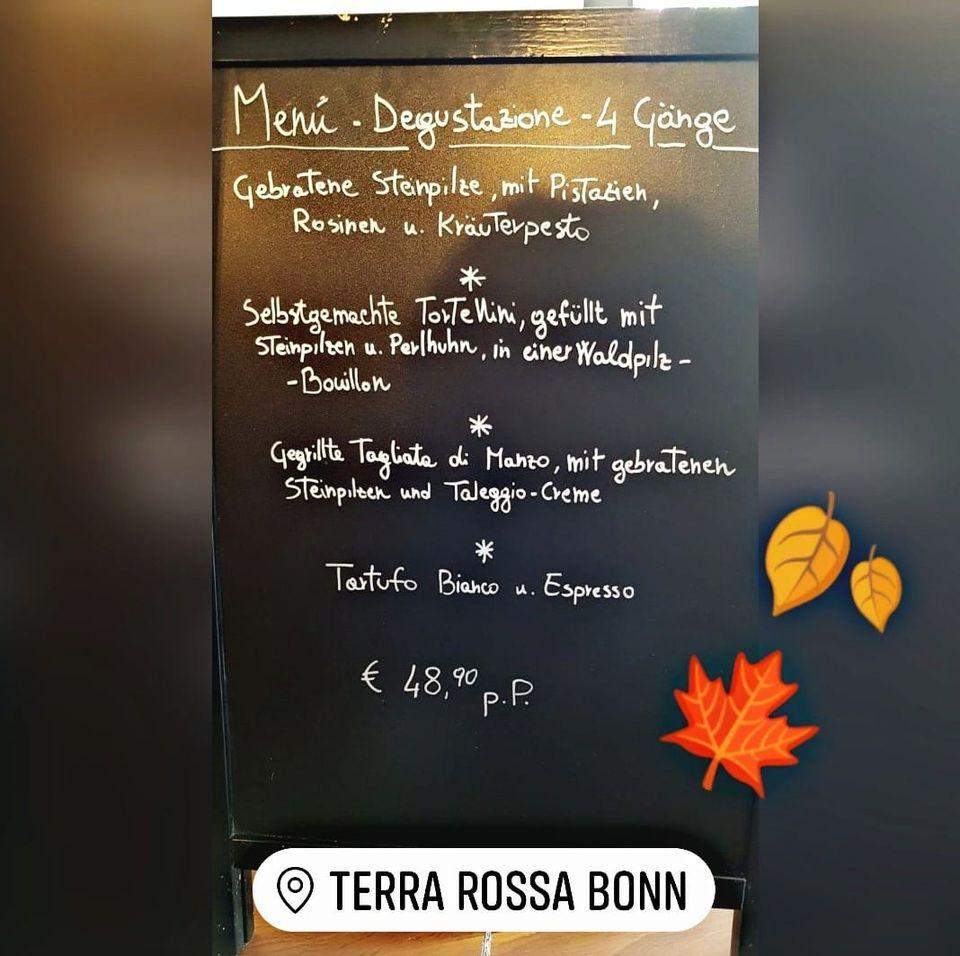 Menú - Degustazione - 4 Gänge
Gebratene Steinpilze, mit Pistazien,
Rosinen u. Kräuterpesto
*
Selbstgemachte Tortellini, gefüllt mit
Steinpilzen u. Perlhuhn, in einer Waldpilz-
-Bouillon
*
Gegrillte Tagliata di Manzo, mit gebratenen
Steinpilzen und Taleggio-Creme
*
Tartufo Bianco u. Espresso
€ 48,90 p.P.
TERRA ROSSA BONN